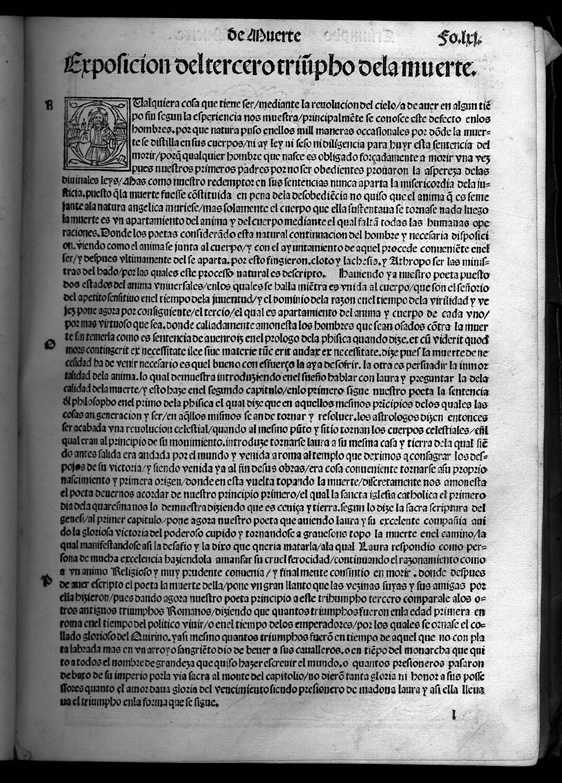 de Muerte
Fo.lxj.
Exposicion del tercero triũpho dela muerte.
A
Ualquiera cosa que tiene ser/mediante la reuolucion del cielo/a de auer en algun tiẽ
po fin segun la esperiencia nos muestra/principalmẽte se conosce este defecto enlos
hombres.por que natura puso enellos mill maneras occasionales por dõde la muer-
te se distilla en sus cuerpos/ni ay ley ni seso ni diligencia para huyr esta sentencia del
morir/porq̃ qualquier hombre que nasce es obligado forçadamente a morir vna vez
pues nuestros primeros padres por no ser obedientes prouaron la aspereza delas
diuinales leys/Mas como nuestro redemptor en sus sentencias nunca aparta la misericordia dela ju-
sticia.puesto q̃ la muerte fuesse cõstituida en pena dela desobediẽcia no quiso que el anima q̃ es seme
jante ala natura angelica muriese/mas solamente el cuerpo que ella sustentaua se tornase nada luego
la muerte es vn apartamento del anima y del cuerpo mediante el qual faltã todas las humanas ope
raciones.Donde los poetas considerãdo esta natural continuacion del hombre y necesaria disposici
on.viendo como el anima se junta al cuerpo/y con el ayuntamiento de aquel procede conueniẽte enel
ser/y despues vltimamente del se aparta.por esto fingieron.cloto y lachesis.y Athropo ser las minis-
tras del hado/por las quales este processo natural es descripto. Hauiendo ya nuestro poeta puesto
dos estados del anima vniuersales/enlos quales se halla miẽtra es vnida al cuerpo/que son el señorio
del apetito sensitiuo en el tiempo dela juuentud/y el dominio dela razon enel tiempo dela virilidad y ve
jez pone agora por consiguiente/el tercio/el qual es apartamiento del anima y cuerpo de cada vno/
por mas virtuoso que sea.donde caliadamente amonesta los hombres que sean osados cõtra la muer
te sin temerla como es sentencia de auenroiz enel prologo dela phisica quando dize.et cũ viderit quod
O
mors contingerit ex necessitate illee siue materie tũc erit audax ex necessitate.dize pues la muerte de ne
cesidad ha de venir necesario es quel bueno con esfuerço la aya de sofrir. la otra es persuadir la inmor
talidad dela anima.lo qual demuestra introduziendo enel sueño hablar con laura y preguntar la dela
calidad dela muerte/y esto haze enel segundo capitulo/enlo primero sigue nuestro poeta la sentencia
đl philosopho enel primo dela phisica el qual dize que en aquellos mesmos prĩcipios delos quales las
cosas an generacion y ser/en aq̃llos mismos se an de tornar y resoluer.los astrologos dizen entonces
ser acabada vna reuolucion celestial/quando al mesmo pũto y sitio tornan los cuerpos celestiales/enl
qual eran al principio de su mouimiento.introduze tornarse laura a su mesma casa y tierra dela qual siẽ
do antes salida era andada por el mundo y venida a roma al templo que deximos a consagrar los des-
pojos de su victoria/y siendo venida ya al fin desus obras/era cosa conueniente tornarse asu proprio
nascimiento y primera origen/donde en esta vuelta topando la muerte/discretamente nos amonesta
el poeta deuernos acordar de nuestro principio primero/el qual la sancta iglesia catholica el primero
dia dela quaresma nos lo demuestra diziendo que es ceniça y tierra.segun lo dize la sacra scriptura del
genesi/al primer capitulo/pone agora nuestro poeta que auiendo laura y su excelente compañia aui
do la gloriosa victoria del poderoso cupido y tornandose a graueson̄s topo la muerte enel camino/la
qual manifestandose asi la desafio y la dixo que queria matarla/ala qual Laura respondio como per-
sona de mucha excelencia haziendola amansar su cruel ferocidad/continuando el razonamiento como
a vn animo Religioso y muy prudente conuenia/y finalmente consintio en morir.donde despues
P
de auer escripto el poeta la muerte della/pone vn gran llanto que las vezinas suyas y sus amigas por
ella hizieron/pues dando agora nuestro poeta principio a este trihumpho tercero comparale alos o-
tros antiguos triumphos Romanos/diziendo que quantos triumphos fueron enla edad primera en
roma enel tiempo del politico viuir/o enel tiempo delos emperadores/por los quales se ornase el co-
llado glorioso del Quirino.y asi mesmo quantos triumphos fuerõ en tiempo de aquel que no con pla
ta labrada mas en vn arroyo sangriẽto dio de beuer a sus caualleros.o en tiẽpo del monarcha que qui
to a todos el nombre de grandeza que quiso hazer escreuir el mundo.o quantos presioneros pasaron
de baxo de su imperio porla via sacra al monte del capitolio/no dierõ tanta gloria ni honor a sus posse
ssores quanto el amor daua gloria del vencimiento siendo presionero de madona laura y asi ella llena
ua el triumpho enla forma que se sigue.